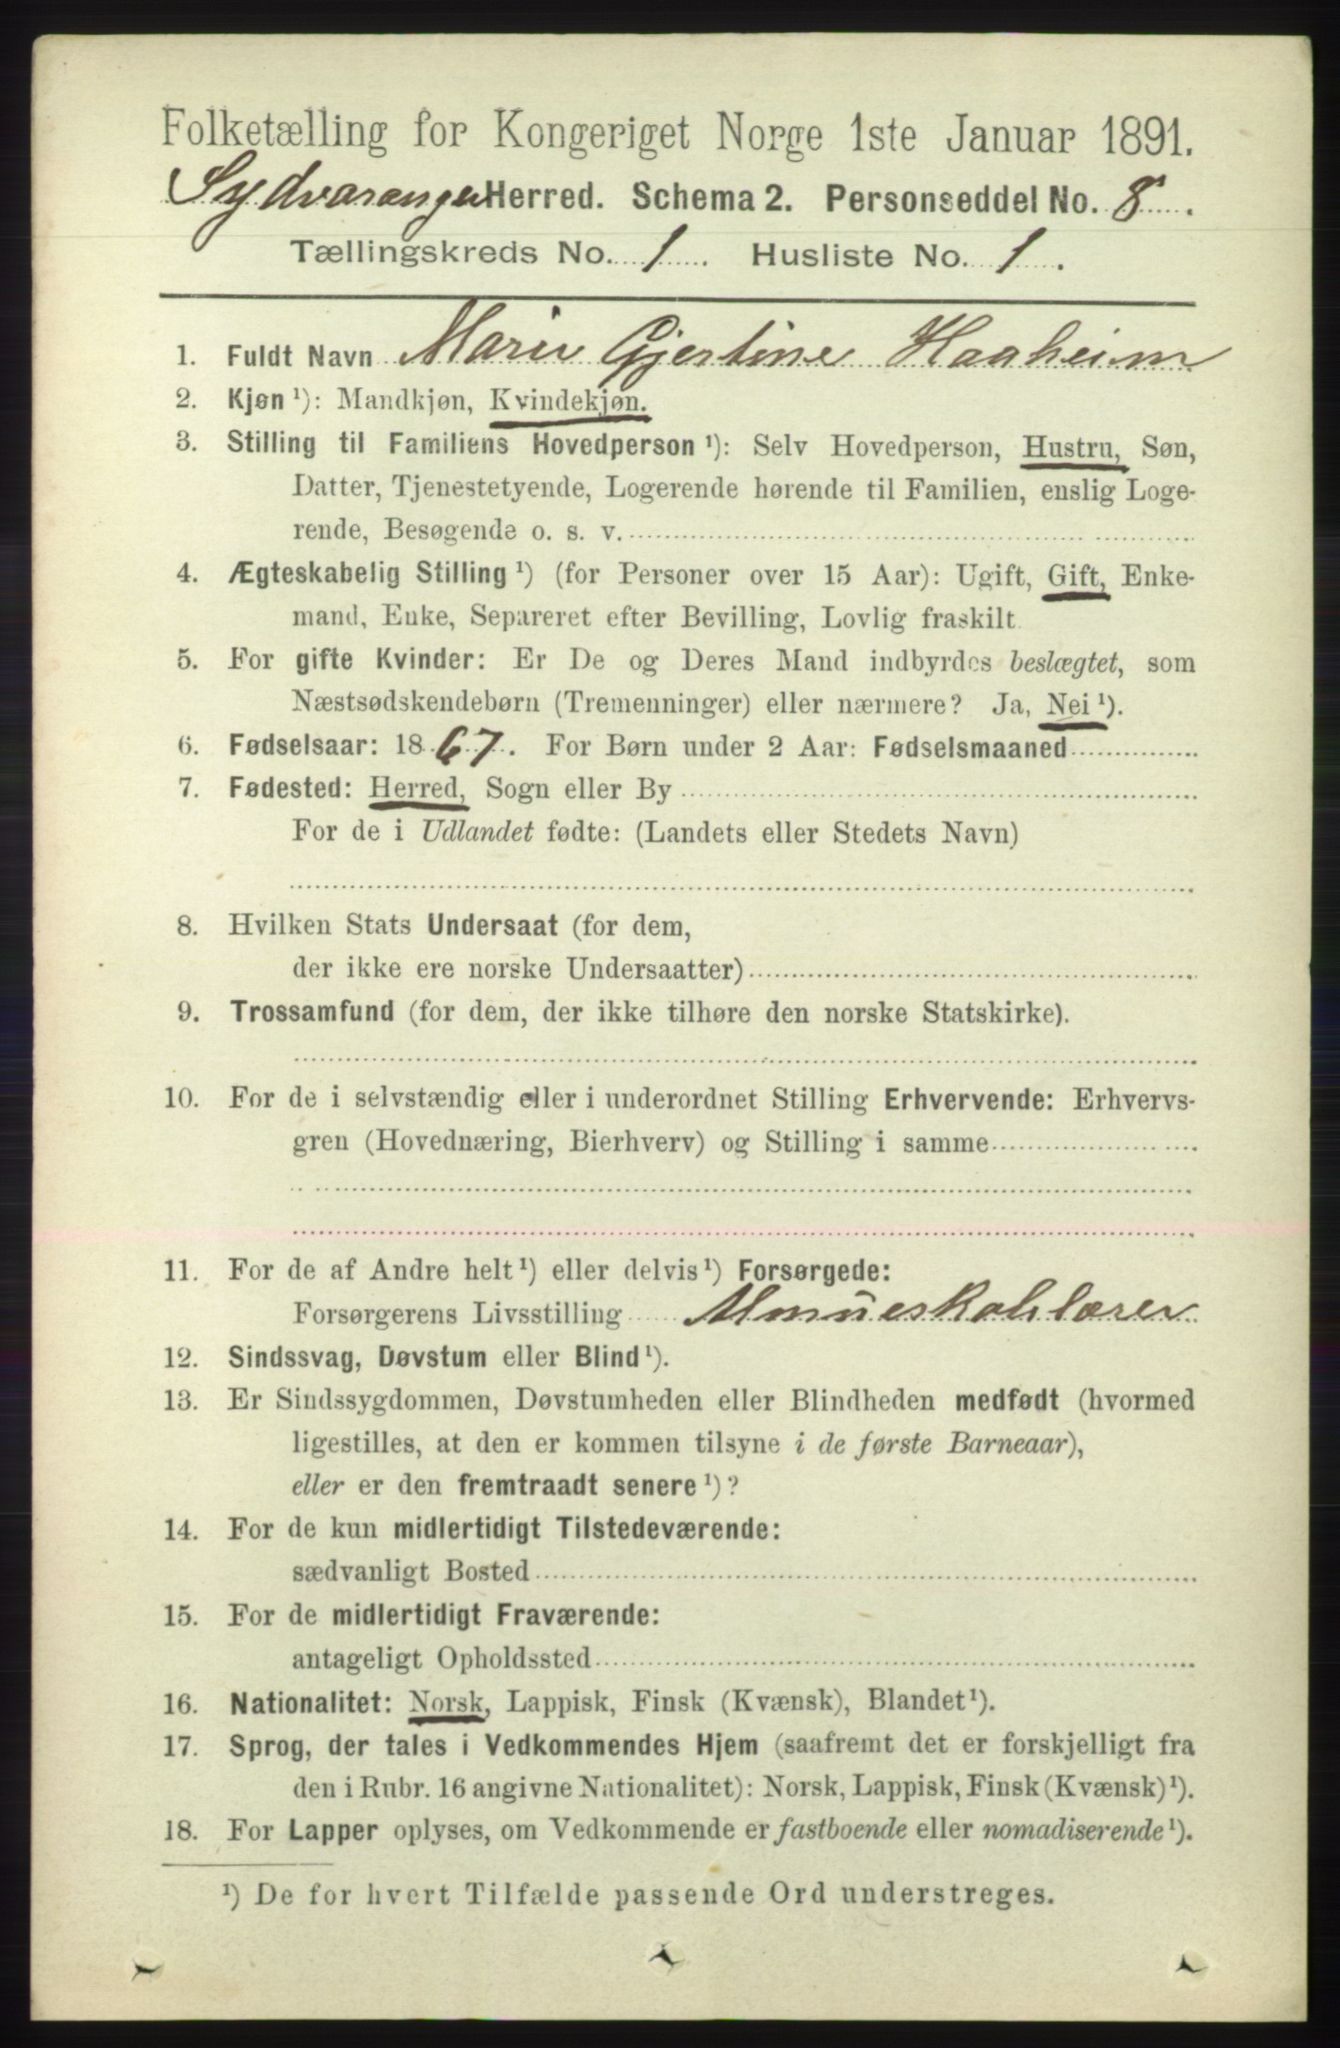 Folketælling for Kongeriget Norge 1ste Januar 1891.
Sydvaranger Herred. Schema 2. Personseddel No. 8.
Tællingskreds No. 1. Husliste No. 1.
1. Fuldt Navn Marie Gjertine Haaheim
2. Kjøn ¹): Mandkjøn, Kvindekjøn.
3. Stilling til Familiens Hovedperson ¹): Selv Hovedperson, Hustru, Søn,
Datter, Tjenestetyende, Logerende hørende til Familien, enslig Loge-
rende, Besøgende o. s. v.
4. Ægteskabelig Stilling ¹) (for Personer over 15 Aar): Ugift, Gift, Enke-
mand, Enke, Separeret efter Bevilling, Lovlig fraskilt
5. For gifte Kvinder: Er De og Deres Mand indbyrdes beslægtet, som
Næstsødskendebørn (Tremenninger) eller nærmere? Ja, Nei ¹).
6. Fødselsaar: 1867. For Børn under 2 Aar: Fødselsmaaned
7. Fødested: Herred, Sogn eller By
For de i Udlandet fødte: (Landets eller Stedets Navn)
8. Hvilken Stats Undersaat (for dem,
der ikke ere norske Undersaatter)
9. Trossamfund (for dem, der ikke tilhøre den norske Statskirke).
10. For de i selvstændig eller i underordnet Stilling Erhvervende: Erhvervs-
gren (Hovednæring, Bierhverv) og Stilling i samme
11. For de af Andre helt ¹) eller delvis ¹) Forsørgede:
Forsørgerens Livsstilling Almueskolelærer
12. Sindssvag, Døvstum eller Blind ¹).
13. Er Sindssygdommen, Døvstumheden eller Blindheden medfødt (hvormed
ligestilles, at den er kommen tilsyne i de første Barneaar),
eller er den fremtraadt senere ¹)?
14. For de kun midlertidigt Tilstedeværende:
sædvanligt Bosted
15. For de midlertidigt Fraværende:
antageligt Opholdssted
16. Nationalitet: Norsk, Lappisk, Finsk (Kvænsk), Blandet ¹).
17. Sprog, der tales i Vedkommendes Hjem (saafremt det er forskjelligt fra
den i Rubr. 16 angivne Nationalitet): Norsk, Lappisk, Finsk (Kvænsk) ¹).
18. For Lapper oplyses, om Vedkommende er fastboende eller nomadiserende ¹).
¹) De for hvert Tilfælde passende Ord understreges.